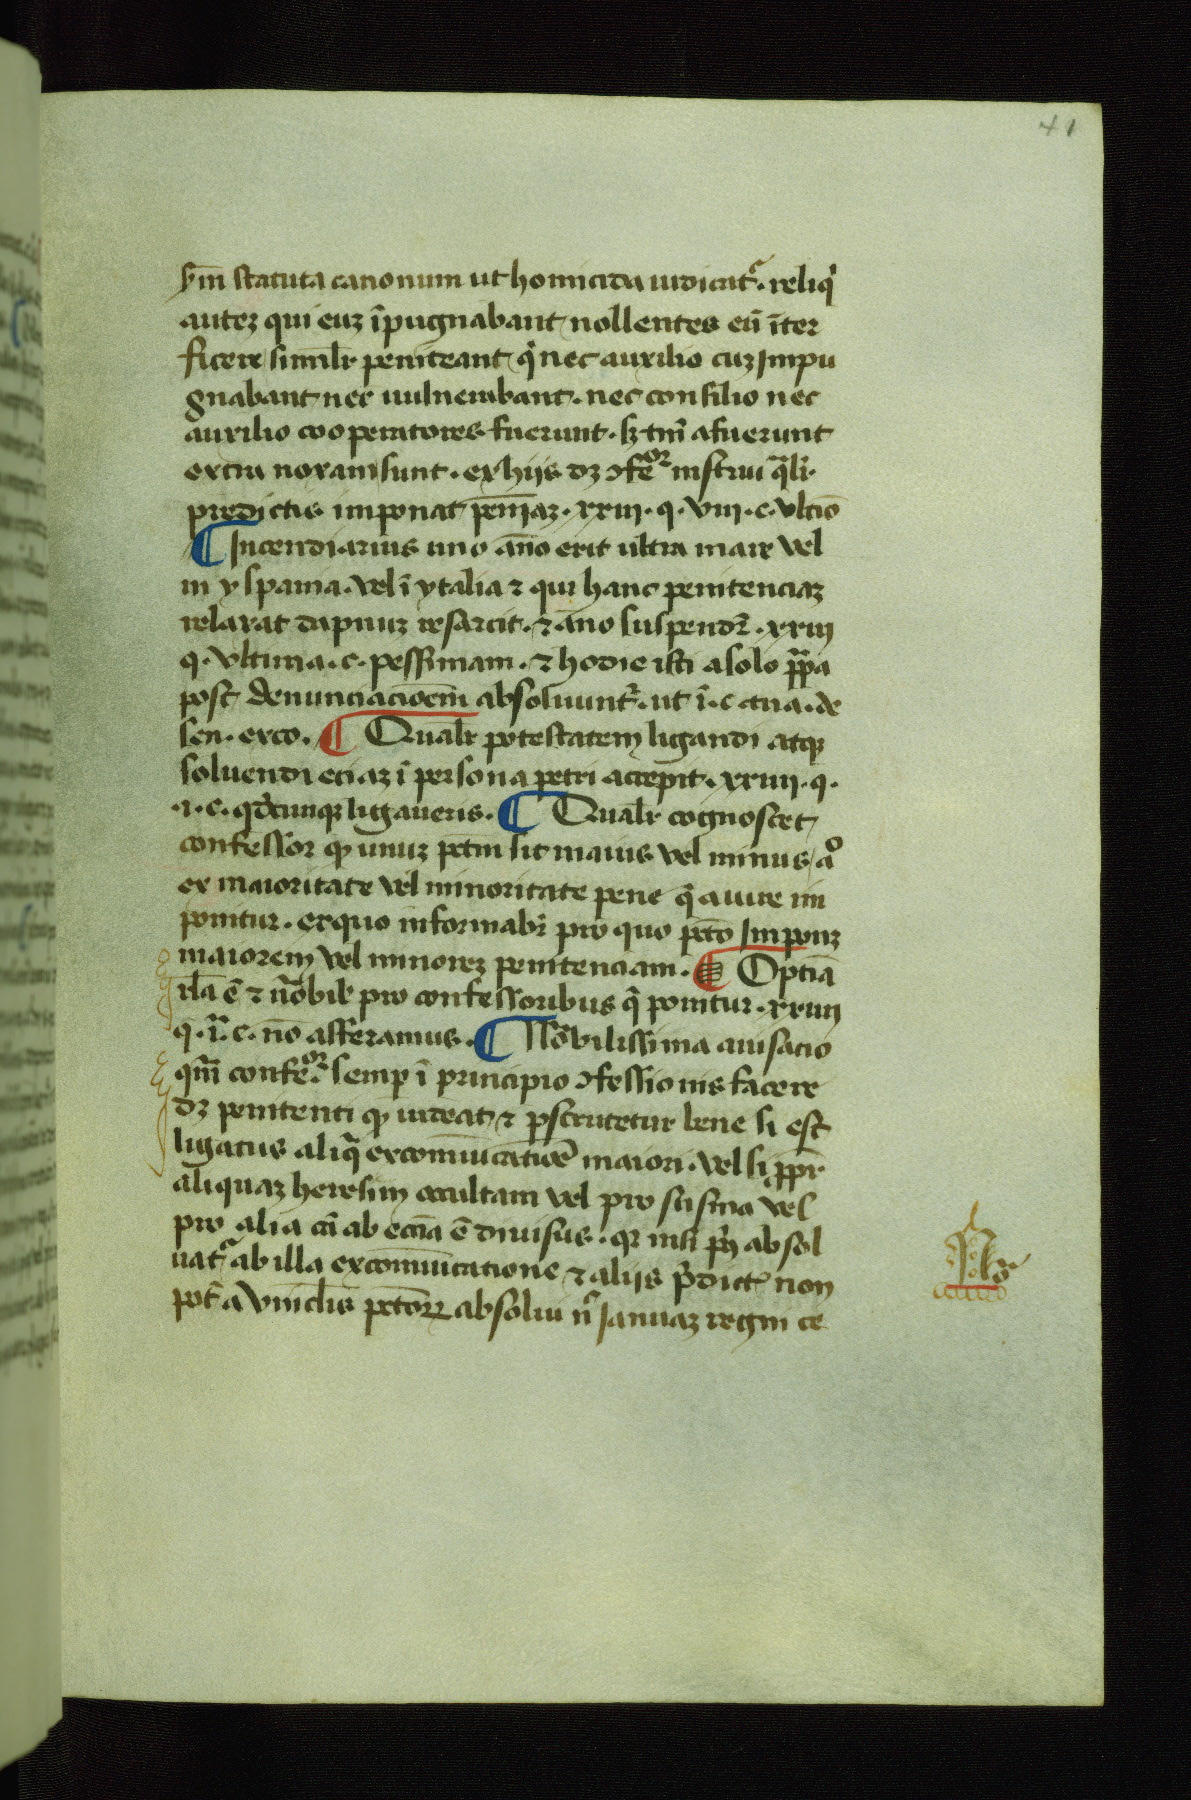 41
sm̄ statuta canonum ut homicida iudicat᷑. reliq̇
autez qui euz īpugnabant nollentes eū īter
ficere similr̄ peniteant q̇ nec auxilio cuz impu
gnabant nec uulnerabant. nec consilio nec
auxilio cooperatores fuerunt. sꝫ tm̄ afuerunt
extra noxam sunt. ex hijs dꝫ ꝯfeor mstrui q̄lr
predictis imponat pen̄iaz. xxiii. q. viii. c. vltio
¶ Incendiarius uno an̄o erit ultra mare vel
in yspania. vel ī ytalia ⁊ qui hanc penitenciaz
relaxat dapnuz resarcit. ⁊ an̄o suspendr̄. xxiii
q. vltima. c. pessimam. ⁊ hodie isti a solo pp̄a
post denunciacioēm absoluunt᷑. ut ī. c tua. de
sen. exco. ¶ Qualr̄ potestatem ligandi atqꝫ
soluendi eciaz ī persona petri accepit. xxiiii. q.
.i. c. qd̄cunqꝫ ligaueris. ¶ Qualr̄ cognoscet
confessor ꝙ unuz pctm̄ sit maius vel minus a͛o
ex maioritate vel minoritate pene q̄ a iure im
ponitur. ex quo informabr̄ pro quo pctō imponz
maiorem vel minorez penitenciam. ¶ Optīa
rl̄a ē ⁊ nōbilˀ pro confessoribus q̄ ponitur. xxiiii
q. i. c. nō afferamus. ¶ Nōbilissima auisacio
qm̄ confeor semꝑ ī principio ꝯfessionis facere
dꝫ penitenti ꝙ uideat ⁊ ꝑscrutetur bene si est
ligatus aliq̄ excom̄uicatioē maiori. vel si ppr̄
aliquaz heresim occultam vel pro scisma vel
pro alia cā ab eccīa ē diuisus. qꝛ nisi pͥ absol
uat᷑ ab illa excom̄uicatione ⁊ alijs p̄dictˀ non
pot̄ a vinclˀis pctōꝝ absolui nͨ ianuaz regni ce